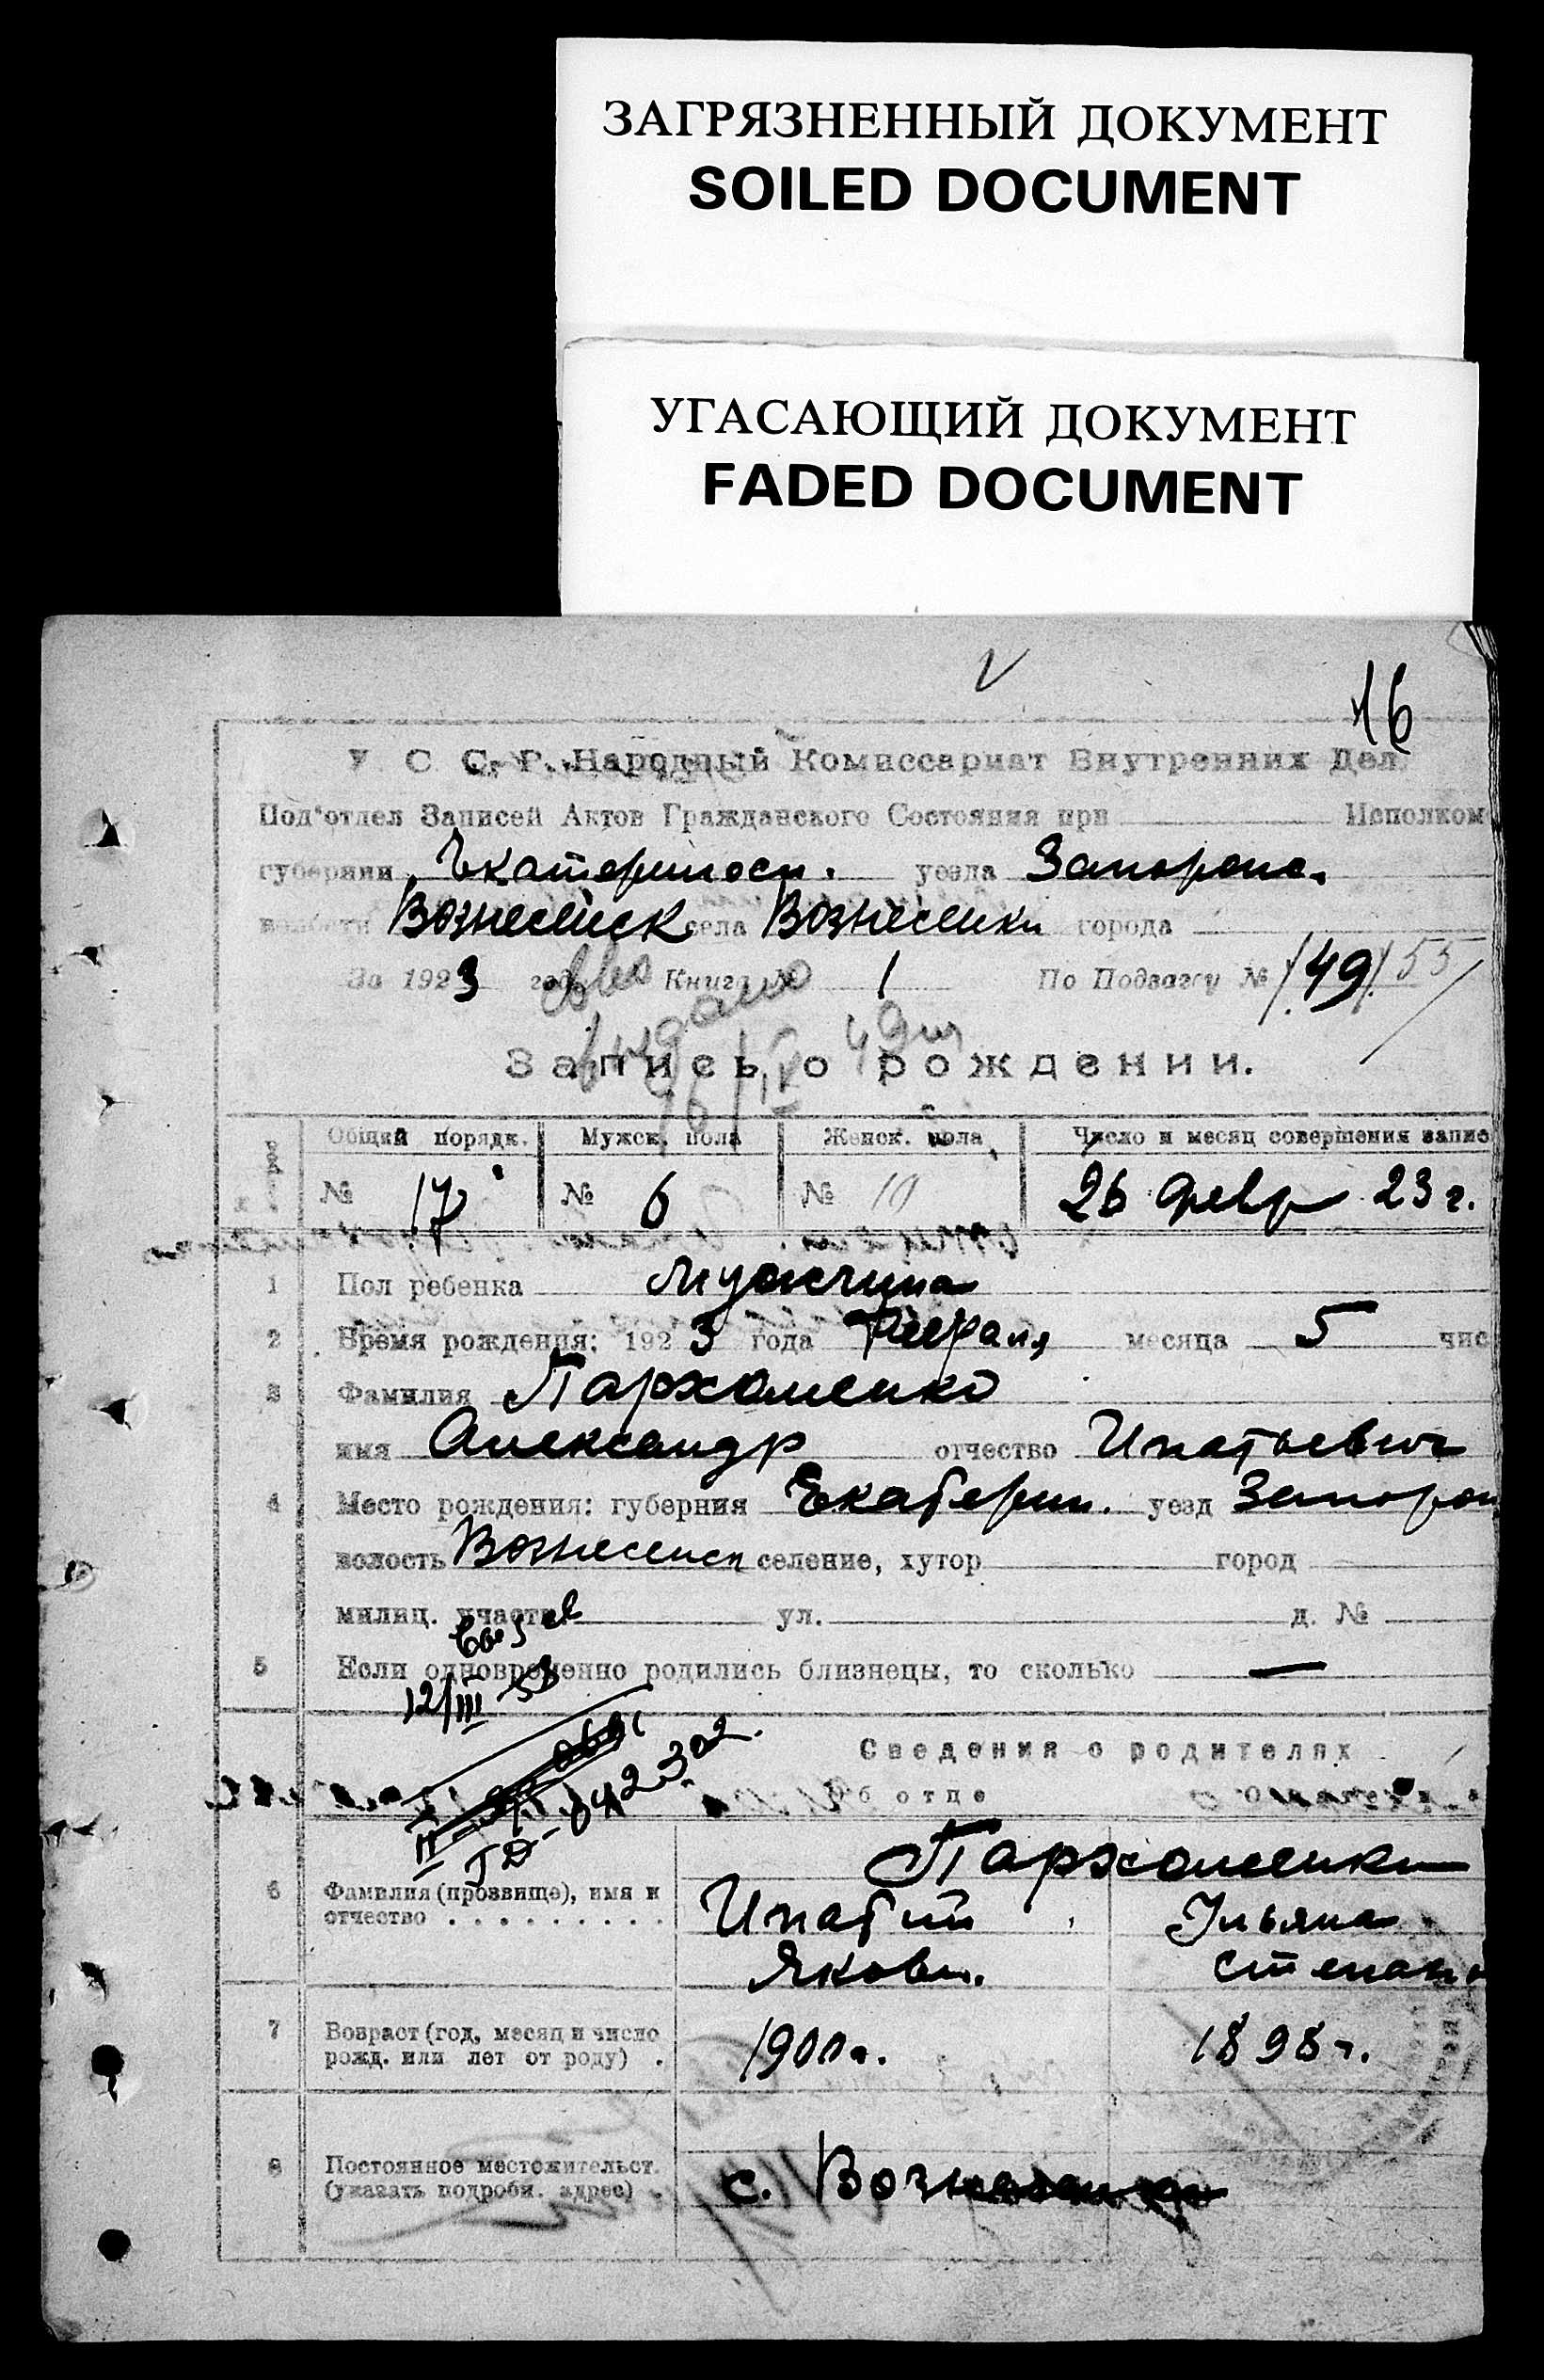 ЗАГРЯЗНЕННЫЙ ДОКУМЕНТ
SOILED DOCUMENT
УГАСАЮЩИЙ ДОКУМЕНТ
FADED DOCUMENT
16
У С С. Р. Народный Комиссариат Внутренних Дел.
Под'отдел Записей Актов Гражданского Состояния при Исполком
губернии Екатериносл. уезда Запорожс.
волости Вознесенск села Вознесенки города
За 1923 год Книга № 1 По Подвагу № 49 55
выдано
Запись о рождении.
16/IV 49
Общий порядк. Мужск. пола Женск. пола Число и месяц совершения запис
№ 17 № 6 № 10 26 февр 23 г.
1 Пол ребенка Мужчина
2 Время рождения: 1923 года Февраля месяца 5 чис
3 Фамилия Пархоменко
имя Александр отчество Игнатьевич
4 Место рождения: губерния Екатерин. уезд Запорож
волость Вознесенск селение, хутор город
милиц. участк ул. д. №
5 Если одновременно родились близнецы, то сколько —
12/III
Сведения о родителях
Об отце О матери
6 Фамилия (прозвище), имя и отчество Пархоменки
Игнатий Ульяна
Яковл. Степано
7 Возраст (год, месяц и число рожд. или лет от роду) 1900 г. 1898 г.
8 Постоянное местожительст. (указать подробн. адрес) с. Вознесенка